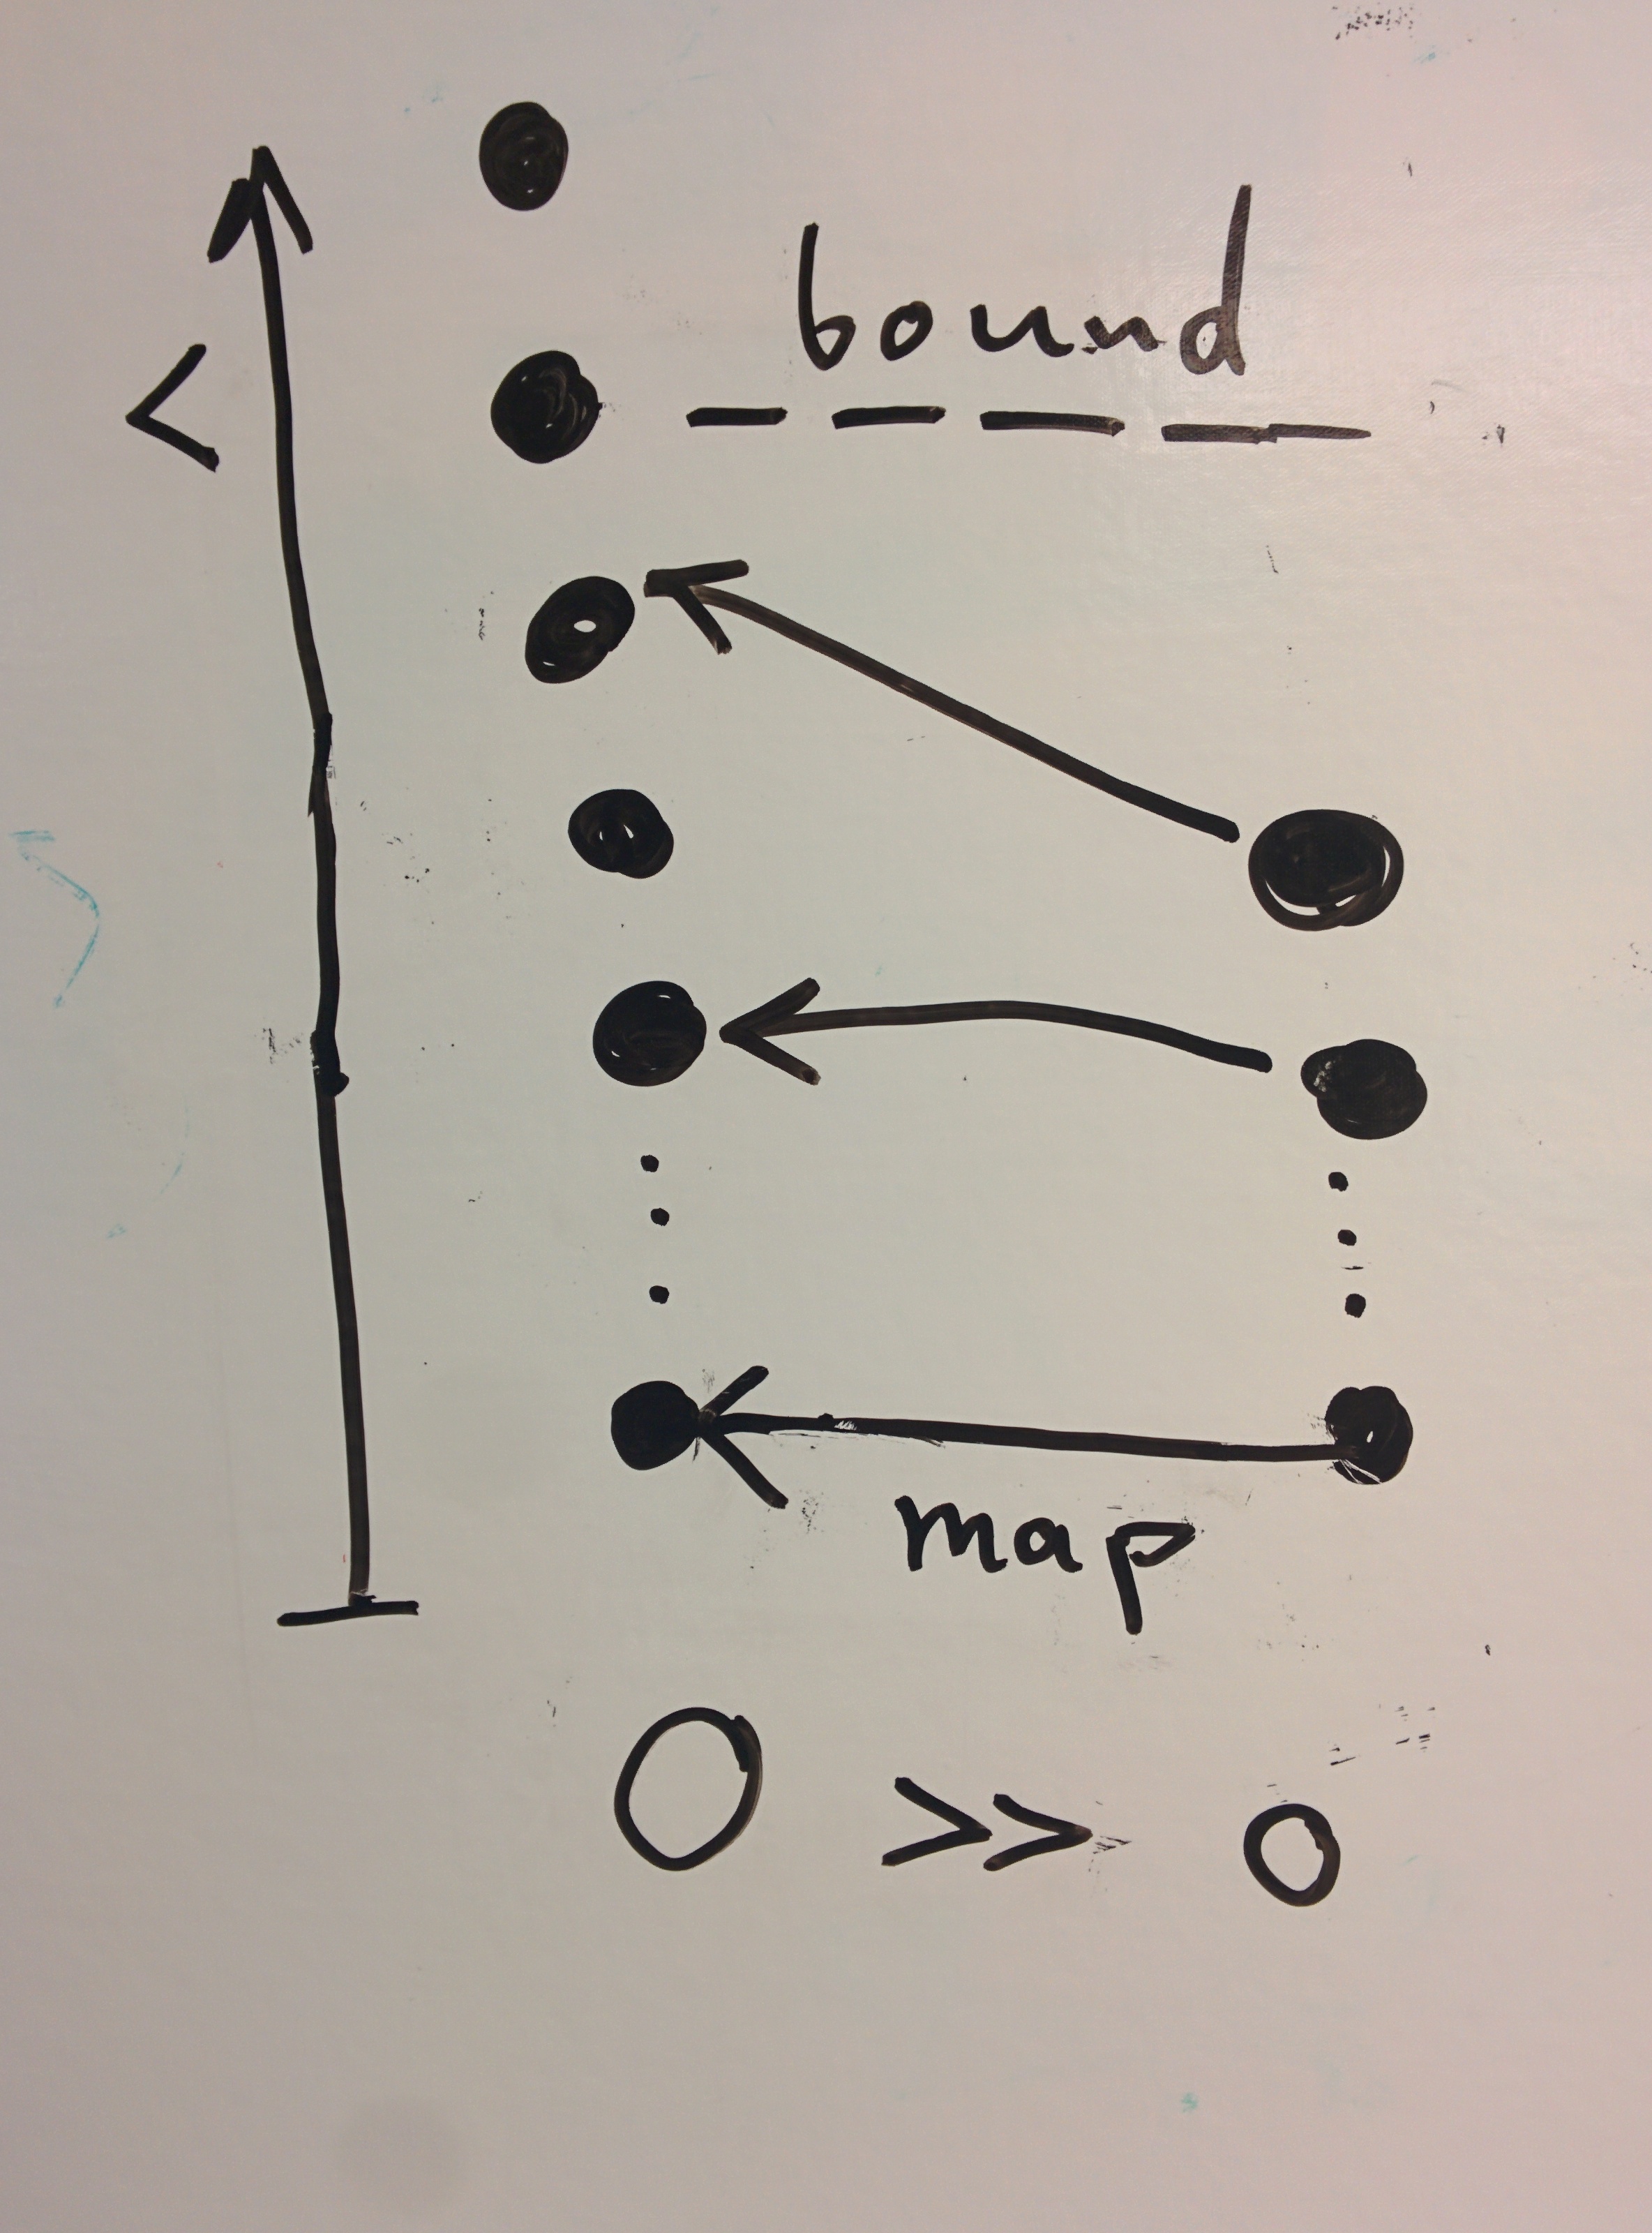 bound
<
map
O >> O